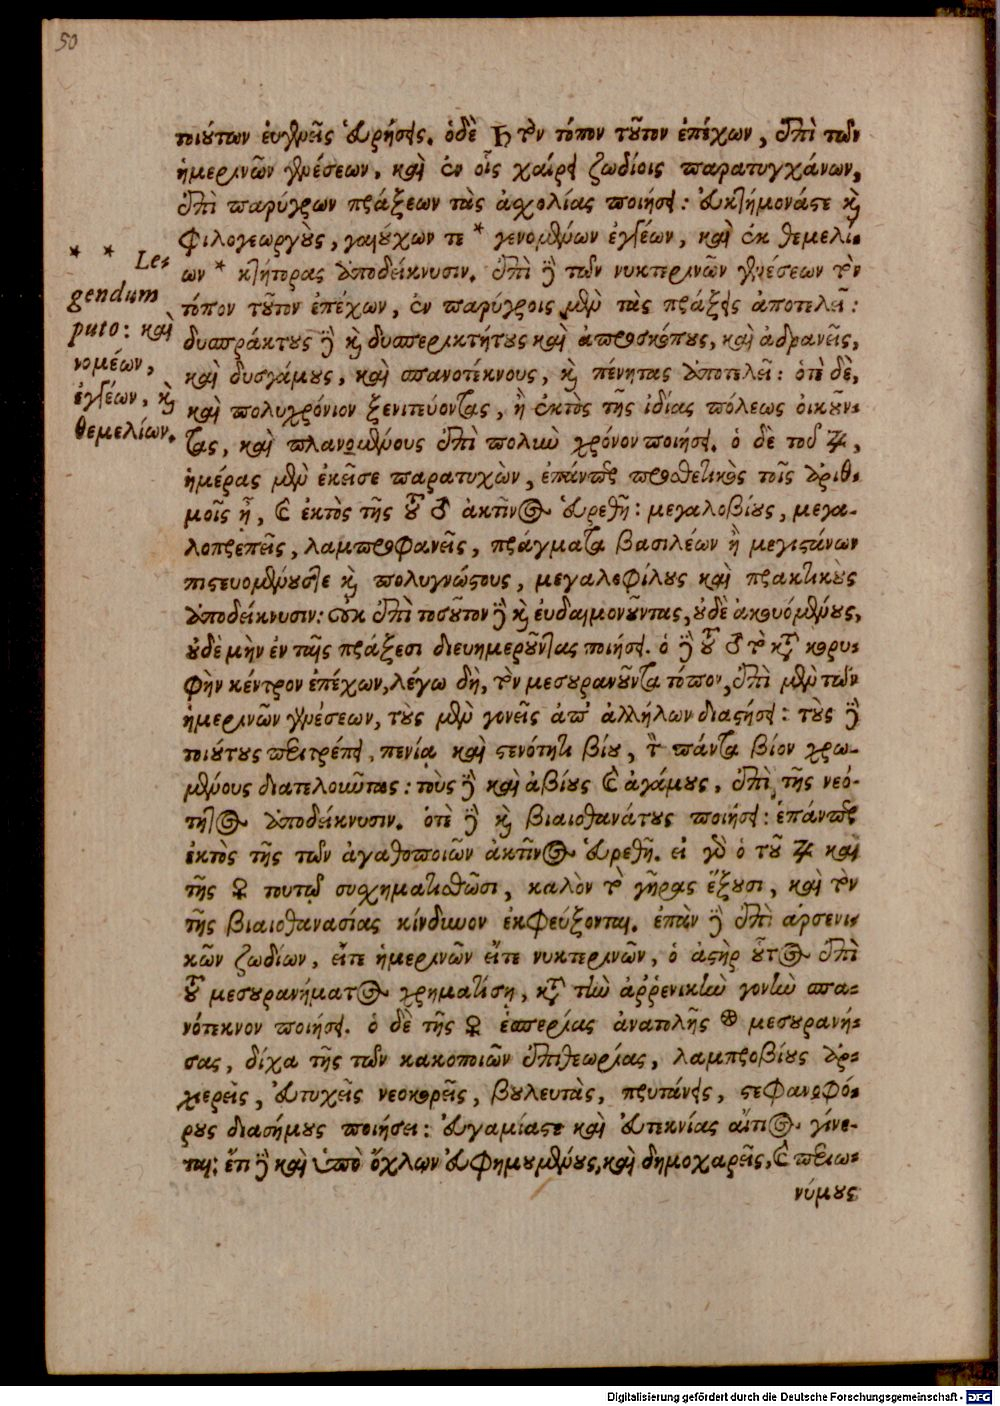 50
τοιούτων ἐυχερεῖς εὑρήσεις. ὁδὲ ♄ τὸν τόπον τοῦτον ἐπέχων, ἐπὶ τῶν
ἡμερινῶν γενέσεων, καὶ ἐν οἷς χαίρει ζωδίοις παρατυγχάνων,
ἐπὶ παρύγρων πράξεων τὰς ἀσχολίας ποιήσει: εὐκτήμονάς τε καὶ
φιλογεωργοὺς, γαιούχων τε * γενομένων ἐγγέων, καὶ ἐκ θεμελί-
ων * κτήτορας ἀποδείκνυσιν. ἐπὶ δὲ τῶν νυκτερινῶν γενέσεων τὸν
τόπον τοῦτον ἐπέχων, ἐν παρύγροις μὲν τὰς πράξεις ἀποτελεῖ:
δυσπράκτους δὲ καὶ δυσπερικτήτους καὶ ἀπροσκόπους, καὶ ἀδρανεῖς,
καὶ δυσγάμους, καὶ σπανοτέκνους, καὶ πένητας ἀποτελεῖ: ὁτὲ δὲ,
καὶ πολυχρόνιον ξενιτεύοντας, ἢ ἐκτὸς τῆς ἰδίας πόλεως οἰκοῦν-
τας, καὶ πλανωμένους ἐπὶ πολὺν χρόνον ποιήσει. ὁ δὲ τοῦ ♃,
ἡμέρας μὲν ἐκεῖσε παρατυχὼν, ἐπάντε προσθετικὸς τοῖς ἀριθ-
μοῖς ἦ, καὶ ἐκτὸς τῆς τοῦ ♂ ἀκτῖνος εὑρεθῆ: μεγαλοβίους, μεγα-
λοπρεπεῖς, λαμπροφανεῖς, πράγματα βασιλέων ἢ μεγιστάνων
πιστευομένους τε καὶ πολυγνώστους, μεγαλεφίλους καὶ πρακτικοὺς
ἀποδείκνυσιν: οὐκ ἐπὶ τοσοῦτον δὲ καὶ ἐυδαιμονοῦντας, οὐδὲ ἀκουόμένους,
οὐδὲ μὴν ἐν ταῖς πράξεσι διευημεροῦντας ποιήσει. ὁ δὲ τοῦ ♂ τὸ κατὰ κορυ-
φὴν κέντρον ἐπέχων, λέγω δὴ, τὸν μεσουρανοῦντα τόπον, ἐπὶ μὲν τῶν
ἡμερινῶν γενέσεων, τοὺς μὲν γονεῖς ἀπ' ἀλλήλων διαστήσει: τοὺς δὲ
τοιούτους περιτρέπει, πενίᾳ καὶ στενότητι βίου, τὸ πάντα βίον χρω-
μένους διατελοῦντας: τοὺς δὲ καὶ ἀβίους καὶ ἀγάμους, ἐπὶ τῆς νεό-
τητος ἀποδείκνυσιν. ὁτὲ δὲ καὶ βιαιοθανάτους ποιήσει: ἐπάντε
ἐκτὸς τῆς τῶν ἀγαθοποιῶν ἀκτῖνος εὑρεθῆ. εἰ γὰρ ὁ τοῦ ♃ καὶ
τῆς ♀ τουτῳ συσχηματισθῶσι, καλὸν τὸ γῆρας ἕξουσι, καὶ τὸν
τῆς βιαιοθανασίας κίνδυνον ἐκφεύξονται. ἐπὰν δὲ ἐπὶ ἀρσενι-
κῶν ζωδίων, εἴτε ἡμερινῶν εἴτε νυκτερινῶν, ὁ ἀστὴρ οὗτος ἐπὶ
τοῦ μεσουρανήματος χρηματίση, κατὰ τὴν ἀῤῥενικὴν γονὴν σπα-
νότεκνον ποιήσει. ὁ δὲ τῆς ♀ ἑσπερίας ἀνατολῆς ⊛ μεσουρανή-
σας, δίχα τῆς τῶν κακοποιῶν ἐπιθεωρίας, λαμπροβίους ἀρ-
χιερεῖς, εὐτυχεῖς νεοκορεῖς, βουλευτὰς, πρυτάνεις, στεφανοφό-
ρους διασήμους ποιήσει: εὐγαμίας τε καὶ εὐτεκνίας αἴτιος γίνε-
ται: ἔτι δὲ καὶ ὑπὸ ὄχλων εὐφημουμένους, καὶ δημοχαρεῖς, καὶ περιω-
νύμους
* * Le-
gendum
puto: καὶ
νομέων,
ἐγγέων, καὶ
θεμελίων.
Digitalisierung gefördert durch die Deutsche Forschungsgemeinschaft - DFG